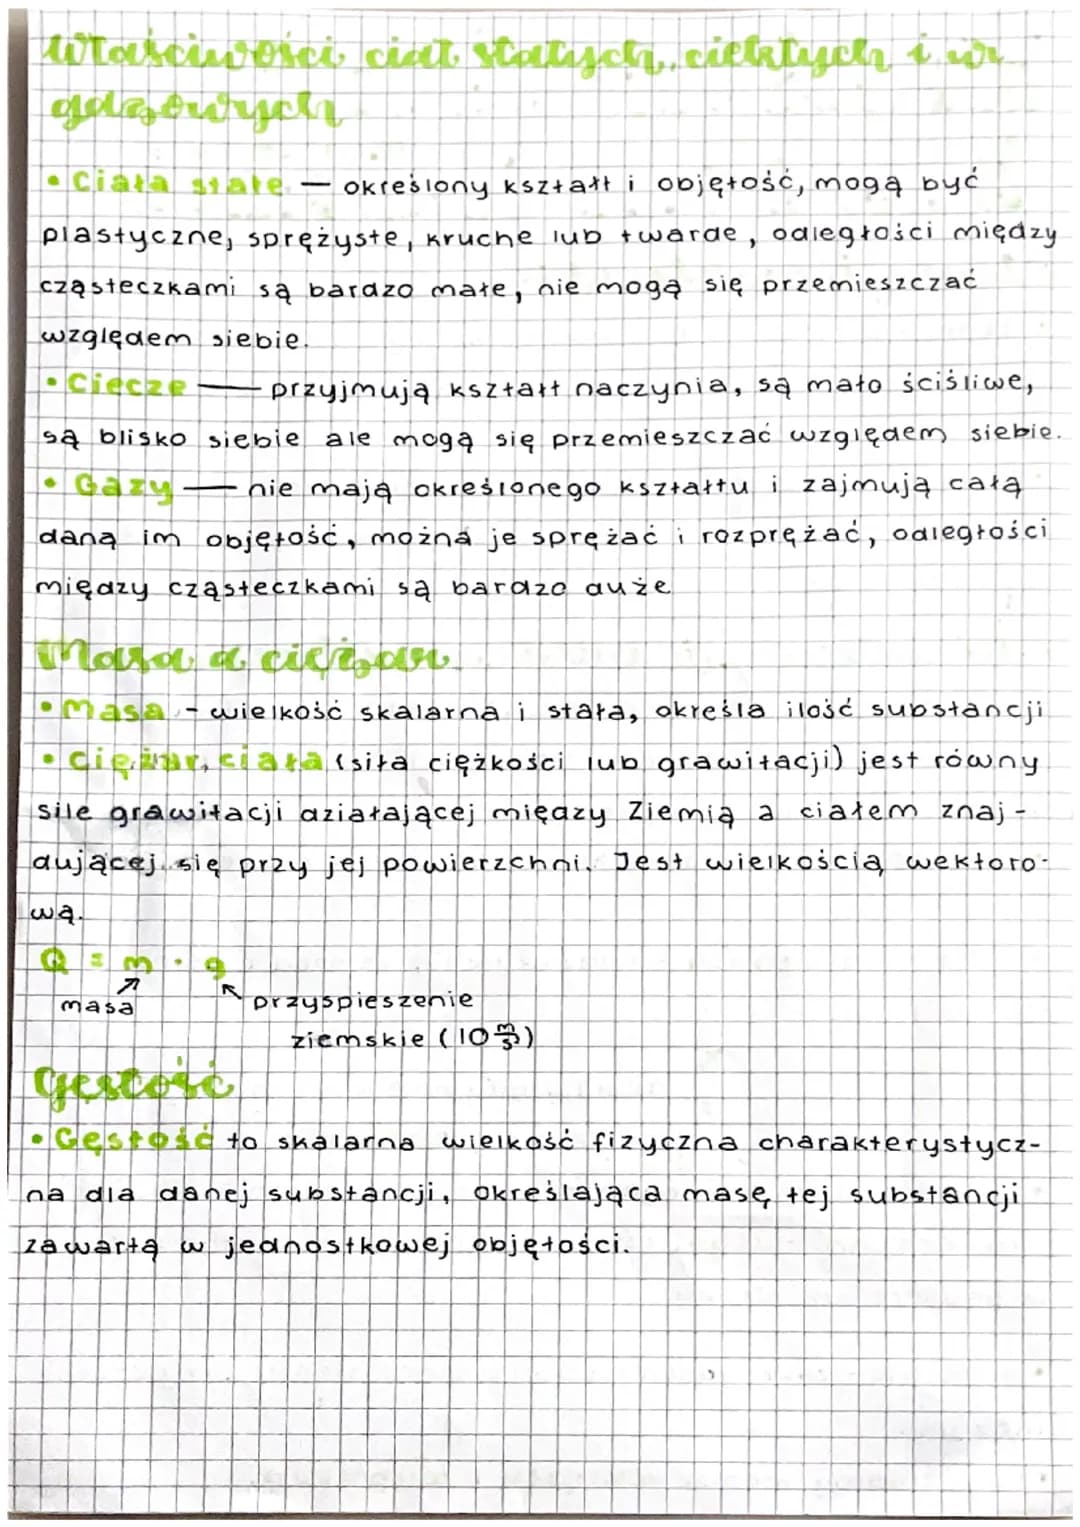 Właściwości ciał stałych, ciekłych i w
gazowych
• Ciała stałe — określony kształt i objętość, mogą być
plastyczne, sprężyste, kruche lub twarde, odległości między
cząsteczkami są bardzo małe, nie mogą się przemieszczać
względem siebie.
• Ciecze — przyjmują kształt naczynia, są mało ściśliwe,
są blisko siebie ale mogą się przemieszczać względem siebie.
• Gazy — nie mają określonego kształtu i zajmują całą
daną im objętość, można je sprężać i rozprężać, odległości
między cząsteczkami są bardzo duże
Masa a ciężar.
• Masa - wielkość skalarna i stała, określa ilość substancji
• Ciężar ciała (siła ciężkości lub grawitacji) jest równy
sile grawitacji działającej między Ziemią a ciałem znaj-
dującej się przy jej powierzchni. Jest wielkością wektoro-
wą.
Q = m · g
masa przyspieszenie
ziemskie (10 m/s)
Gęstość
• Gęstość to skalarna wielkość fizyczna charakterystycz-
na dla danej substancji, określająca masę tej substancji
zawartą w jednostkowej objętości.